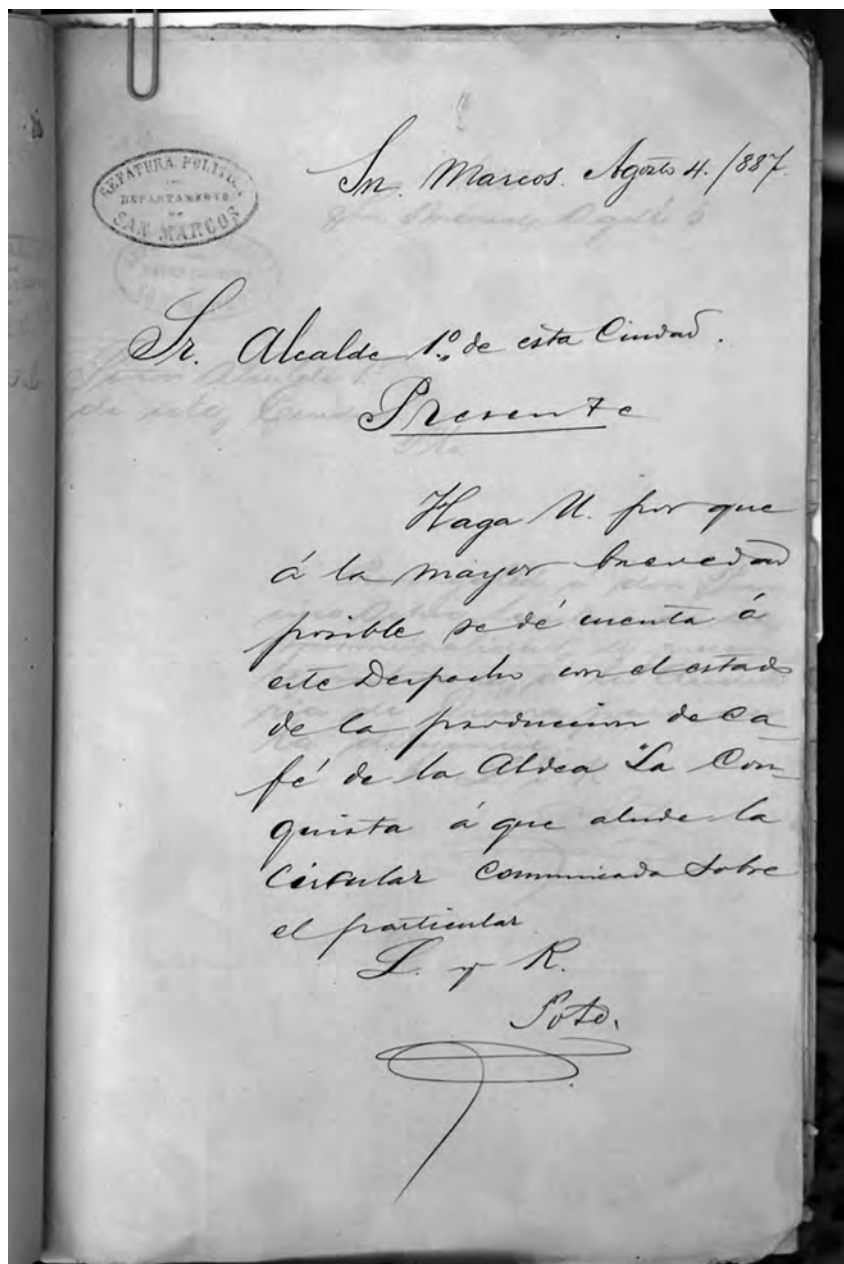 JEFATURA POLITICA
DEPARTAMENTO
DE
SAN MARCOS
Sn. Marcos. Agosto 4. /887.
Sr. Alcalde 1º de esta Ciudad.
Presente
Haga U. por que
á la mayor brevedad
posible se dé cuenta á
este Despacho con el estado
de la produccion de ca-
fé de la Aldea "La Con-
quista á que alude la
Circular comunicada sobre
el particular
L. y R.
Soto.